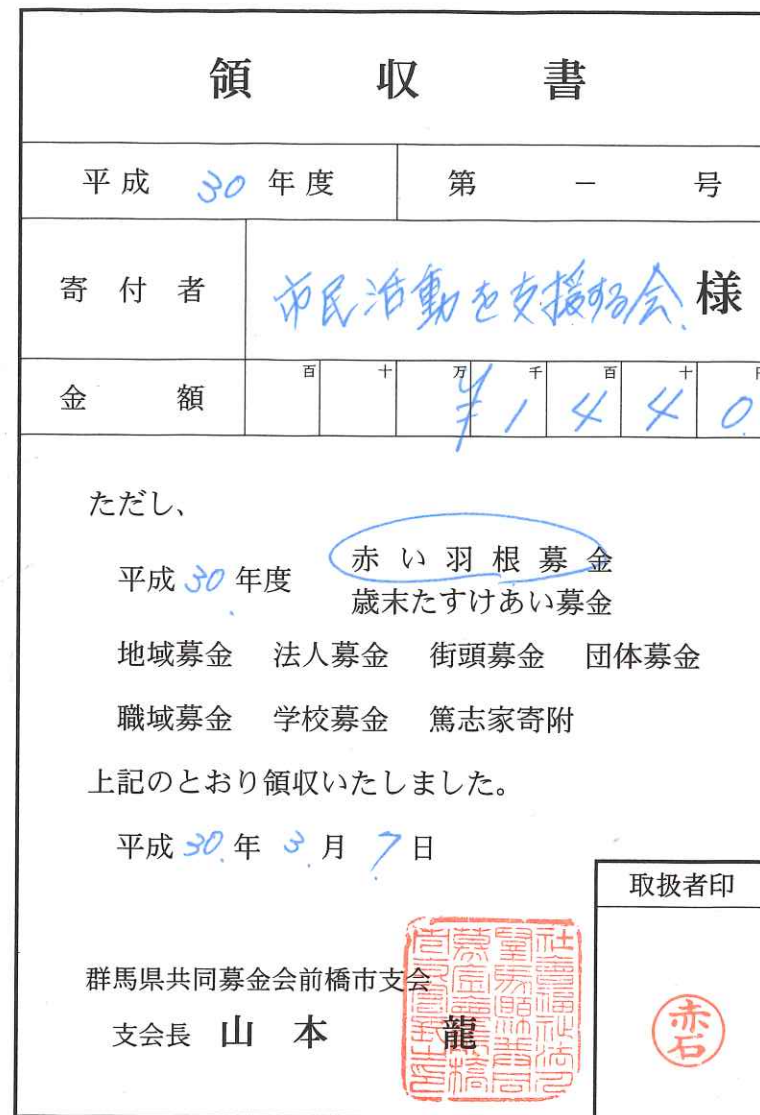 領収書
平成 30 年度 第 － 号
寄付者 市民活動を支援する会 様
金額 百 十 万 千 百 十 円
¥1440
ただし、
平成 30 年度 赤い羽根募金
歳末たすけあい募金
地域募金 法人募金 街頭募金 団体募金
職域募金 学校募金 篤志家寄附
上記のとおり領収いたしました。
平成 30 年 3 月 7 日
取扱者印
群馬県共同募金会前橋市支会
支会長 山本 龍
赤石